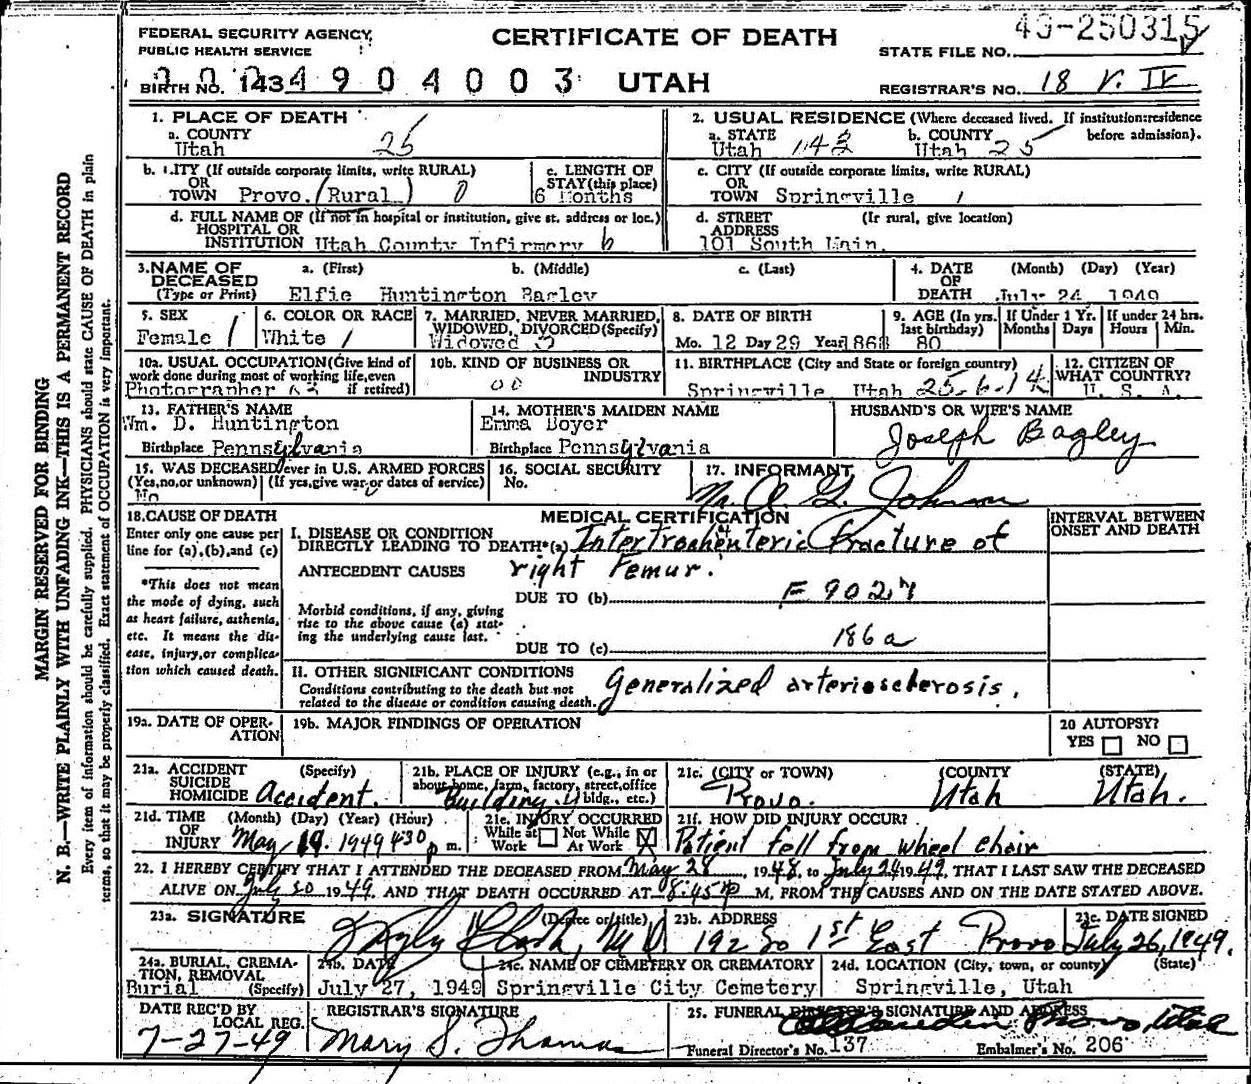 FEDERAL SECURITY AGENCY,
PUBLIC HEALTH SERVICE
CERTIFICATE OF DEATH
STATE FILE NO. 49-250315
BIRTH NO. 143 4904003 UTAH
REGISTRAR'S NO. 18 V. IV
1. PLACE OF DEATH
a. COUNTY
Utah 25
2. USUAL RESIDENCE (Where deceased lived. If institution: residence before admission).
a. STATE b. COUNTY
Utah 143 Utah 25
b. CITY (If outside corporate limits, write RURAL)
OR
TOWN Provo. (Rural) 0
c. LENGTH OF
STAY (this place)
6 Months
c. CITY (If outside corporate limits, write RURAL)
OR
TOWN Springville 1
d. FULL NAME OF (If not in hospital or institution, give st. address or loc.)
HOSPITAL OR
INSTITUTION Utah County Infirmery b
d. STREET (If rural, give location)
ADDRESS
101 South Main.
3. NAME OF
DECEASED
(Type or Print)
a. (First) b. (Middle) c. (Last)
Elfie Huntington Bagley
4. DATE (Month) (Day) (Year)
OF
DEATH July 24 1949
5. SEX
Female 1
6. COLOR OR RACE
White 1
7. MARRIED, NEVER MARRIED,
WIDOWED, DIVORCED (Specify)
Widowed
8. DATE OF BIRTH
Mo. 12 Day 29 Year 1868
9. AGE (In yrs. last birthday)
80
If Under 1 Yr.
Months Days
If under 24 hrs.
Hours Min.
10a. USUAL OCCUPATION (Give kind of
work done during most of working life, even
if retired)
Photographer
10b. KIND OF BUSINESS OR
INDUSTRY
11. BIRTHPLACE (City and State or foreign country)
Springville Utah
12. CITIZEN OF
WHAT COUNTRY?
U. S. A.
13. FATHER'S NAME
Wm. D. Huntington
Birthplace Pennsylvania
14. MOTHER'S MAIDEN NAME
Emma Boyer
Birthplace Pennsylvania
HUSBAND'S OR WIFE'S NAME
Joseph Bagley
15. WAS DECEASED ever in U.S. ARMED FORCES
(Yes, no, or unknown) (If yes, give war or dates of service)
No
16. SOCIAL SECURITY
No.
17. INFORMANT
Mr. A. G. Johnson
18. CAUSE OF DEATH
Enter only one cause per
line for (a), (b), and (c)
*This does not mean
the mode of dying, such
as heart failure, asthenia,
etc. It means the dis-
ease, injury, or complica-
tion which caused death.
MEDICAL CERTIFICATION
I. DISEASE OR CONDITION
DIRECTLY LEADING TO DEATH*(a) Intertrochenteric Fracture of
right Femur.
ANTECEDENT CAUSES
DUE TO (b) F 902 7
Morbid conditions, if any, giving
rise to the above cause (a) stat-
ing the underlying cause last.
DUE TO (c) 186a
INTERVAL BETWEEN
ONSET AND DEATH
II. OTHER SIGNIFICANT CONDITIONS
Conditions contributing to the death but not
related to the disease or condition causing death.
Generalized arteriosclerosis.
19a. DATE OF OPER-
ATION
19b. MAJOR FINDINGS OF OPERATION
20 AUTOPSY?
YES NO
21a. ACCIDENT (Specify)
SUICIDE
HOMICIDE Accident.
21b. PLACE OF INJURY (e.g., in or
about home, farm, factory, street, office
bldg., etc.)
Building.
21c. (CITY or TOWN) (COUNTY) (STATE)
Provo. Utah Utah.
21d. TIME (Month) (Day) (Year) (Hour)
OF
INJURY May 19. 1949 4:30 p m.
21e. INJURY OCCURRED
While at Work Not While At Work
21f. HOW DID INJURY OCCUR?
Patient fell from wheel chair
22. I HEREBY CERTIFY THAT I ATTENDED THE DECEASED FROM May 28, 1948, to July 24 1949, THAT I LAST SAW THE DECEASED
ALIVE ON July 20 1949, AND THAT DEATH OCCURRED AT 8:45 p M, FROM THE CAUSES AND ON THE DATE STATED ABOVE.
23a. SIGNATURE (Degree or title)
Clark, M D
23b. ADDRESS
192 So 1st East Provo
23c. DATE SIGNED
July 26, 1949.
24a. BURIAL, CREMA-
TION, REMOVAL
(Specify)
Burial
24b. DATE
July 27, 1949
24c. NAME OF CEMETERY OR CREMATORY
Springville City Cemetery
24d. LOCATION (City, town, or county) (State)
Springville, Utah
DATE REC'D BY
LOCAL REG.
7-27-49
REGISTRAR'S SIGNATURE
Mary S. Thomas
25. FUNERAL DIRECTOR'S SIGNATURE AND ADDRESS
Provo, Utah
Funeral Director's No. 137 Embalmer's No. 206
MARGIN RESERVED FOR BINDING
N. B.—WRITE PLAINLY WITH UNFADING INK—THIS IS A PERMANENT RECORD
Every item of information should be carefully supplied. PHYSICIANS should state CAUSE OF DEATH in plain
terms, so that it may be properly classified. Exact statement of OCCUPATION is very important.